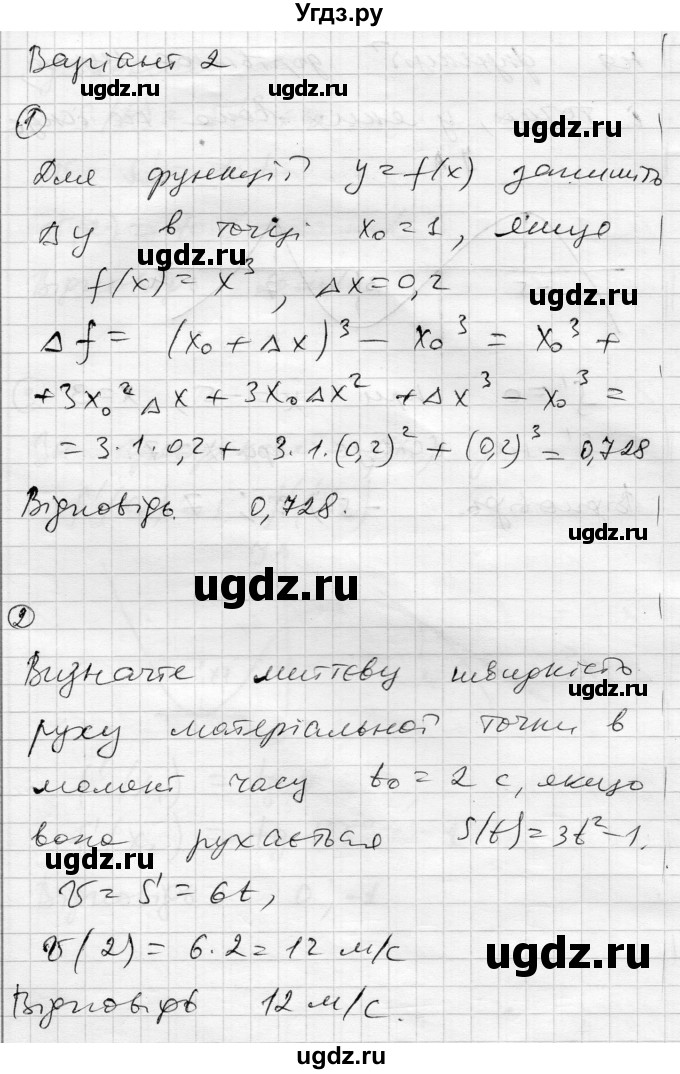 Угдз.ру
Варіант 2
ugdz.ru ugdz.ru
1
ugdz.ru
Для функції y = f(x) запишіть
Δy в точці x₀ = 1, якщо
ugdz.ru
f(x) = x³, Δx = 0,2
ugdz.ru
Δf = (x₀ + Δx)³ − x₀³ = x₀³ +
+3x₀²Δx + 3x₀Δx² + Δx³ − x₀³ =
ugdz.ru
= 3·1·0,2 + 3·1·(0,2)² + (0,2)³ = 0,728
Відповідь 0,728.
ugdz.ru
ugdz.ru
2
Визначте миттєву швидкість
ugdz.ru
руху матеріальної точки в
момент часу t₀ = 2 с, якщо
вона рухається S(t) = 3t² − 1.
ugdz.ru ugdz.ru
v = S' = 6t,
v(2) = 6·2 = 12 м/с
ugdz.ru
Відповідь 12 м/с.
ugdz.ru
ugdz.ru